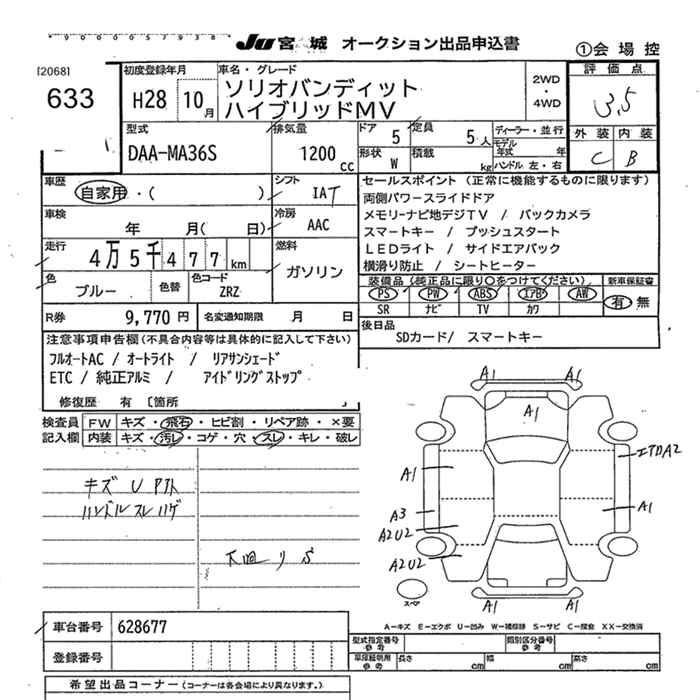 900057938
JU 宮城 オークション出品申込書
①会場控
[2068]
633
初度登録年月
H28 10月
車名・グレード
ソリオバンディット
ハイブリッドMV
2WD
・
4WD
評価点
3.5
外装 内装
C B
型式
DAA-MA36S
排気量
1200 cc
ドア 5
定員 5人
形状 W
積載 kg
ディーラー・並行
モデル年式 年
ハンドル 左・右
車歴
自家用・( )
シフト
IAT
車検
年 月( 日)
冷房
AAC
走行
4万5千477km
燃料
ガソリン
色
ブルー
色替
色コード
ZRZ
R券 9,770円
名変通知期限 月 日
セールスポイント(正常に機能するものに限ります)
両側パワースライドドア
メモリーナビ地デジTV / バックカメラ
スマートキー / プッシュスタート
LEDライト / サイドエアバック
横滑り防止 / シートヒーター
装備品(純正品に限り○をつけてください)
新車保証書
PS PW ABS エアB AW
SR ナビ TV カワ
有 無
後日品
SDカード/ スマートキー
注意事項申告欄(不具合内容等は具体的に記入して下さい)
フルオートAC / オートライト / リアサンシェード
ETC / 純正アルミ / アイドリングストップ
修復歴 有 〔箇所 〕
検査員記入欄
FW キズ・飛石・ヒビ割・リペア跡・×要
内装 キズ・汚レ・コゲ・穴・スレ・キレ・破レ
キズ U アト
ハンドルスレハゲ
下廻りサビ
A1
A1
A1
A1
エTDA2
A1
A3
A2U2
A1
A2U2
A1
A1
スペア
A-キズ E-エクボ U-凹み W-補修跡 S-サビ C-腐食 XX-交換済
車台番号 628677
登録番号
型式指定番号 参考
類別区分番号 参考
車庫証明用 参考
長さ cm
幅 cm
高さ cm
希望出品コーナー(コーナーは各会場により異なります。)